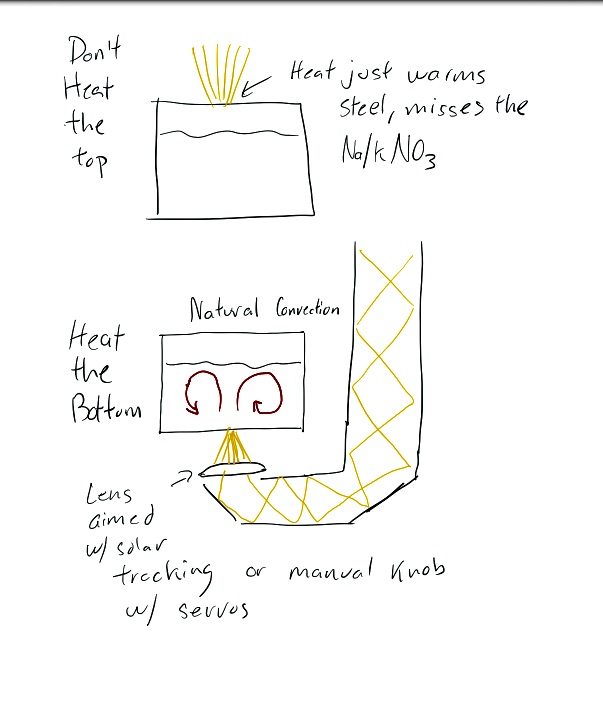 Don't
Heat
the
top
Heat just warms
steel, misses the
Na/k NO3
Natural Convection
Heat
the
Bottom
Lens
aimed
w/ solar
tracking or manual knob
w/ servos